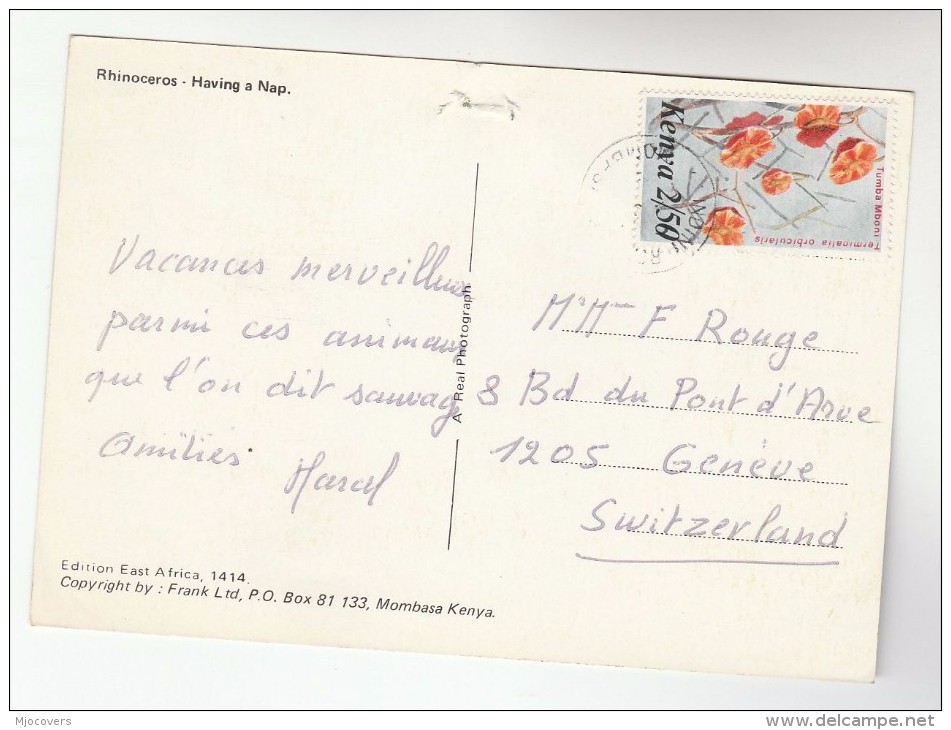 Rhinoceros - Having a Nap.
Kenya 2/50
Tumba Mboni Terminalia orbicularis
Vacances merveilleuses
parmi ces animaux
que l'on dit sauvage
Amitiés
A Real Photograph
Mr Mme F Rouge
8 Bd du Pont d'Arve
1205 Genève
Switzerland
Edition East Africa, 1414.
Copyright by : Frank Ltd, P.O. Box 81 133, Mombasa Kenya.
Mjocovers
www.delcampe.net